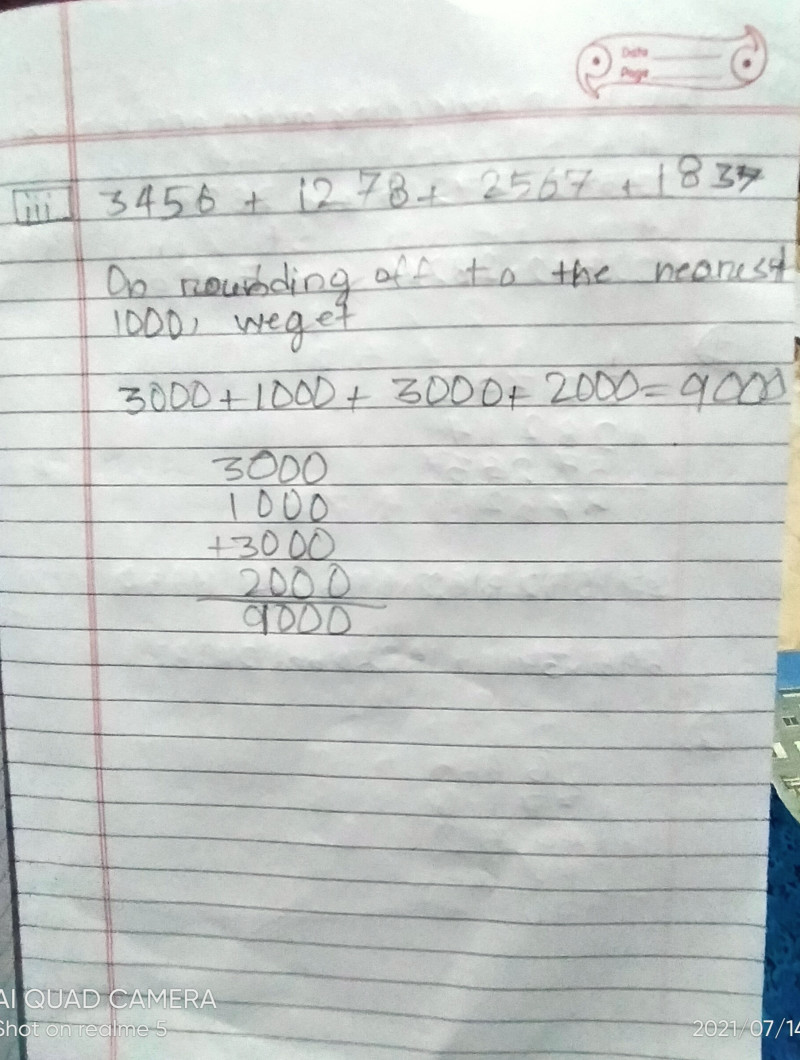 Date
Page
iii 3456 + 1278 + 2567 + 1837
On rounding off to the nearest
1000, we get
3000 + 1000 + 3000 + 2000 = 9000
3000
1000
+3000
2000
9000
AI QUAD CAMERA
Shot on realme 5
2021/07/14